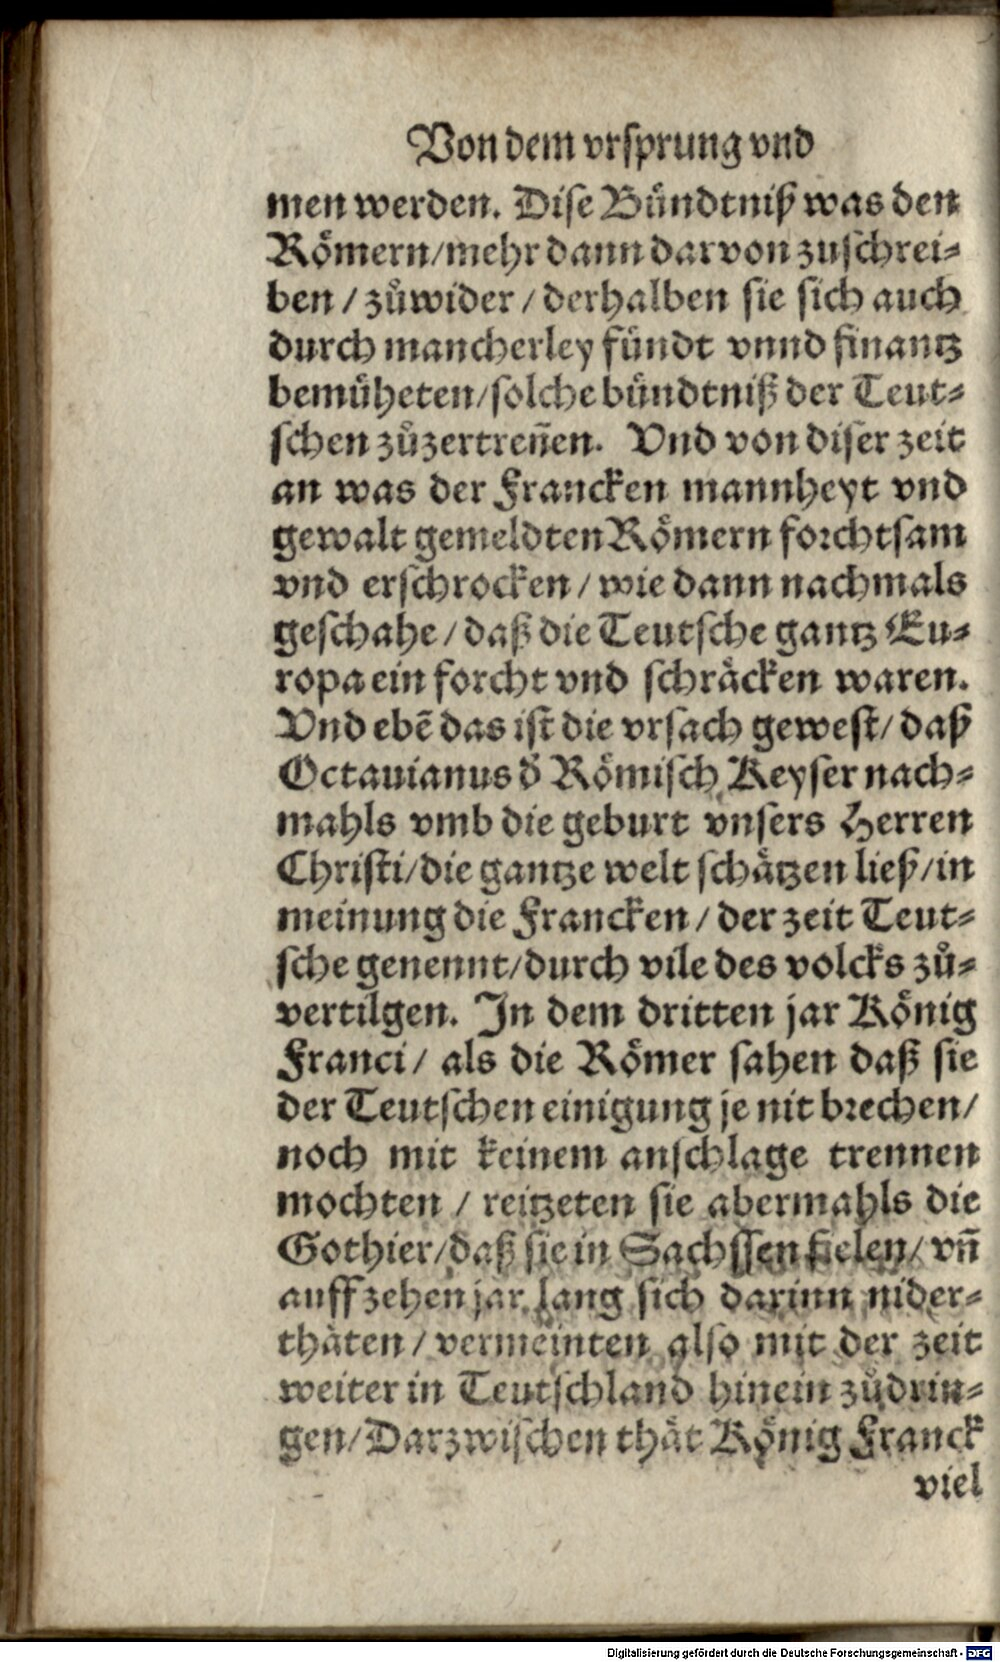 Von dem vrsprung vnd
men werden. Dise Bündtniß was den
Römern/mehr dann darvon zuschrei⸗
ben / zůwider / derhalben sie sich auch
durch mancherley fündt vnnd finantz
bemüheten/solche bündtniß der Teut⸗
schen zůzertreñen. Vnd von diser zeit
an was der Francken mannheyt vnd
gewalt gemeldten Römern forchtsam
vnd erschrocken / wie dann nachmals
geschahe / daß die Teutsche gantz Eu⸗
ropa ein forcht vnd schräcken waren.
Vnd ebē das ist die vrsach gewest/ daß
Octauianus d̕ Römisch Keyser nach⸗
mahls vmb die geburt vnsers Herren
Christi/die gantze welt schätzen ließ/in
meinung die Francken / der zeit Teut⸗
sche genennt/durch vile des volcks zů⸗
vertilgen. In dem dritten jar König
Franci / als die Römer sahen daß sie
der Teutschen einigung je nit brechen/
noch mit keinem anschlage trennen
mochten / reitzeten sie abermahls die
Gothier/daß sie in Sachssen fielen/ vñ
auff zehen jar lang sich darinn nider⸗
thäten / vermeinten also mit der zeit
weiter in Teutschland hinein zůdrin⸗
gen/Darzwischen thät König Franck
viel
Digitalisierung gefördert durch die Deutsche Forschungsgemeinschaft - DFG